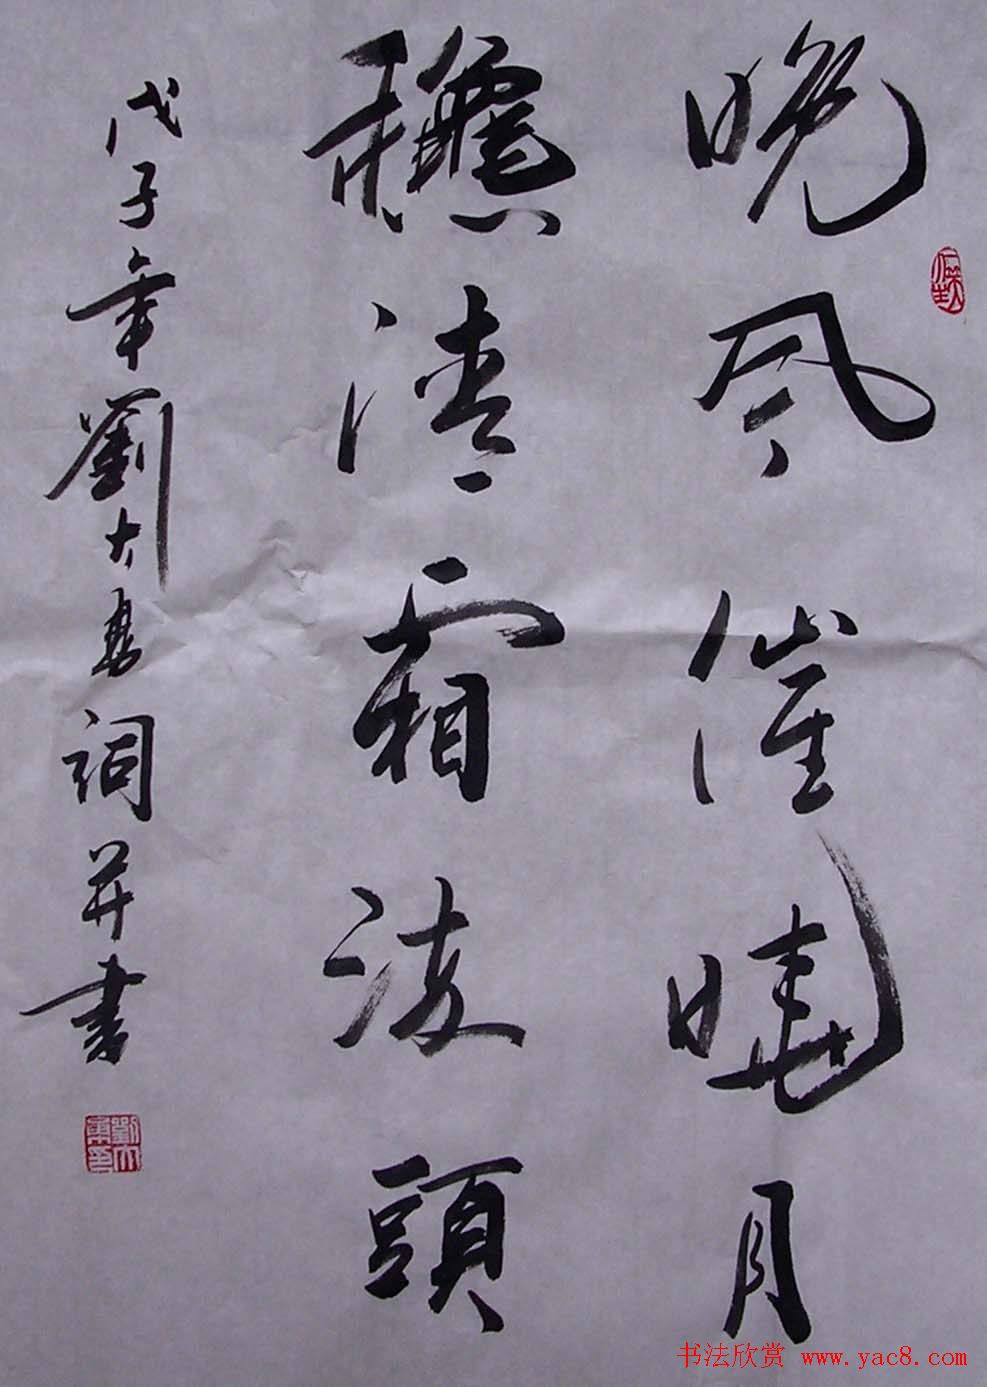 晚风催曉月
清霜頭
戊子年劉大詞并書
书法欣赏 www.yac8.com